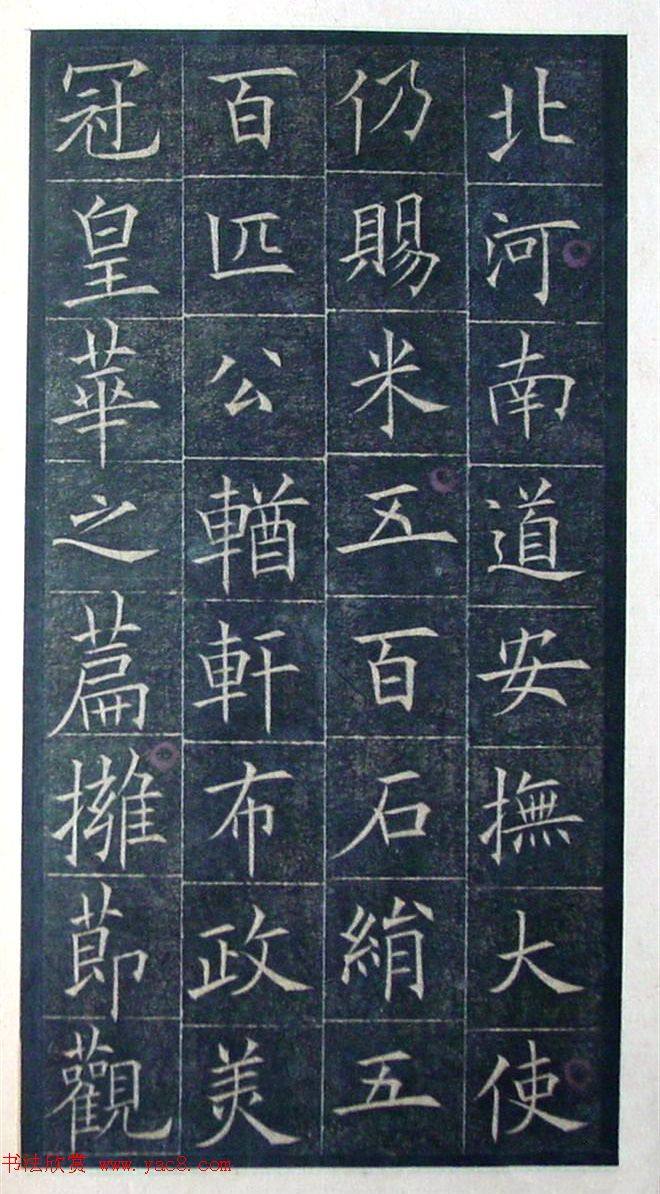 北河南道安撫大使
仍賜米五百石絹五
百匹公輶軒布政美
冠皇華之篇擁節觀
书法欣赏 www.yac8.com